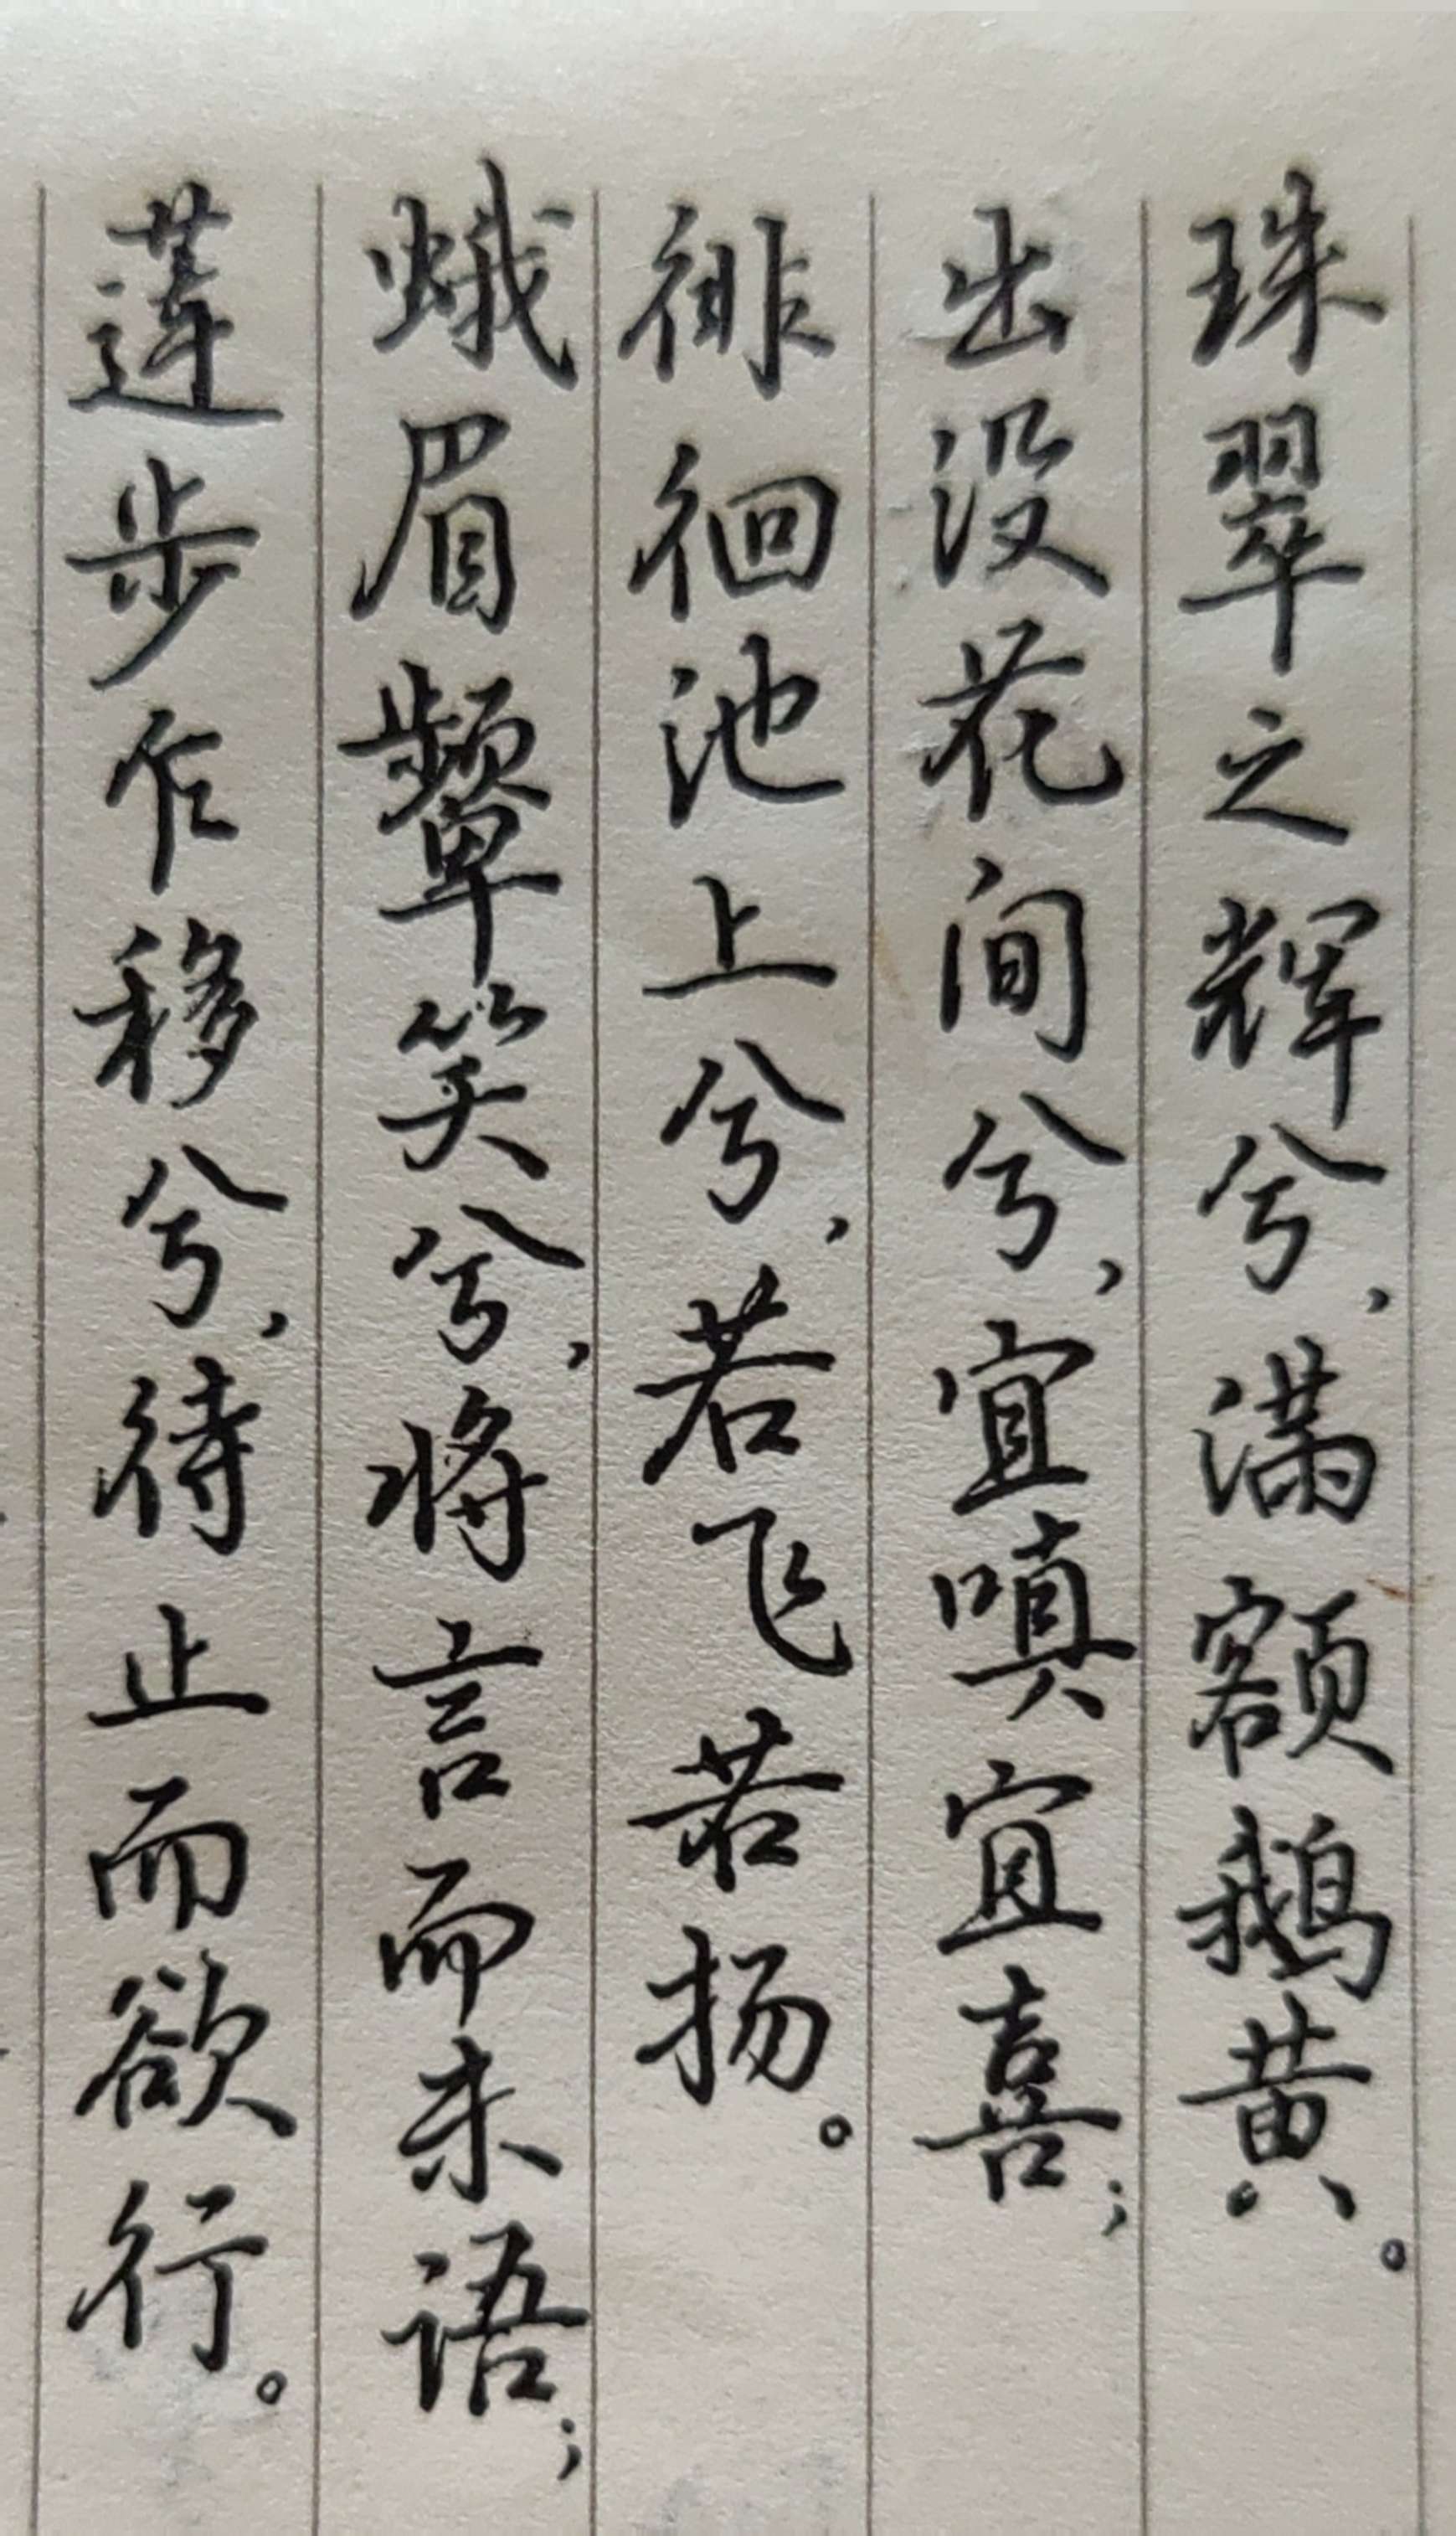 珠翠之辉兮，满额鹅黄。
出没花间兮，宜嗔宜喜；
徘徊池上兮，若飞若扬。
蛾眉颦笑兮，将言而未语；
莲步乍移兮，待止而欲行。